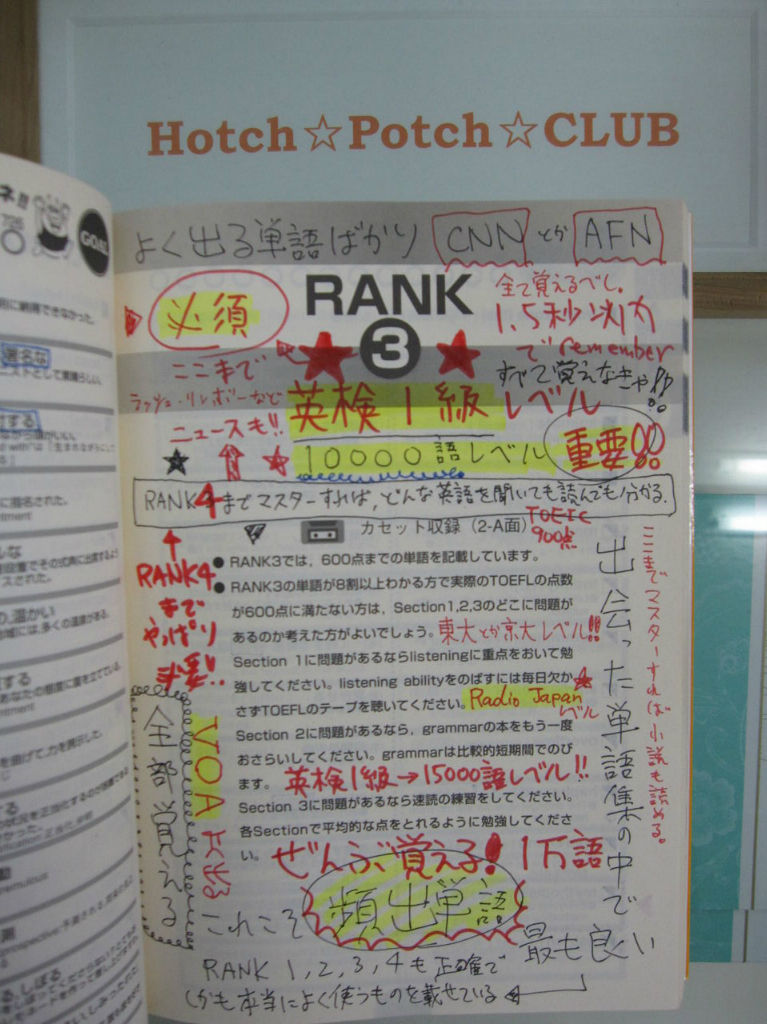 Hotch☆Potch☆CLUB
よく出る単語ばかり CNN とか AFN
必須
RANK
3
全て覚えるべし。
1.5秒以内
でremember
すべて覚えなきゃ!!
ここまで
ラッシュ・リンボーなど
ニュースも!!
英検1級レベル
10000語レベル
重要!!
RANK4までマスターすれば,どんな英語を聞いても読んでも分かる.
カセット収録(2-A面)
TOEIC
900点
RANK4
まで
やっぱり
重要!!
●RANK3では,600点までの単語を記載しています。
●RANK3の単語が8割以上わかる方で実際のTOEFLの点数
が600点に満たない方は,Section1,2,3のどこに問題が
あるのか考えた方がよいでしょう。東大とか京大レベル!!
Section 1に問題があるならlisteningに重点をおいて勉
強してください。listening abilityをのばすには毎日欠か
さずTOEFLのテープを聴いてください。Radio Japan
レベル
Section 2に問題があるなら,grammarの本をもう一度
おさらいしてください。grammarは比較的短期間でのび
ます。英検1級→15000語レベル!!
Section 3に問題があるなら速読の練習をしてください。
各Sectionで平均的な点をとれるように勉強してくださ
い。
ぜんぶ覚える! 1万語
VOAよく出る
全部覚える
ここまでマスターすれば小説も読める。
出会った単語集の中で
最も良い
これこそ 頻出単語
RANK 1,2,3,4も正確で
しかも本当によく使うものを載せている
GOAL
用に納得できなかった。
著名な
ニストとして素晴らしい。
に指名された。
ntment
の,温かい
地域には,多くの温泉がある。
ntment
を曲げて,力を誇示した。
remulous